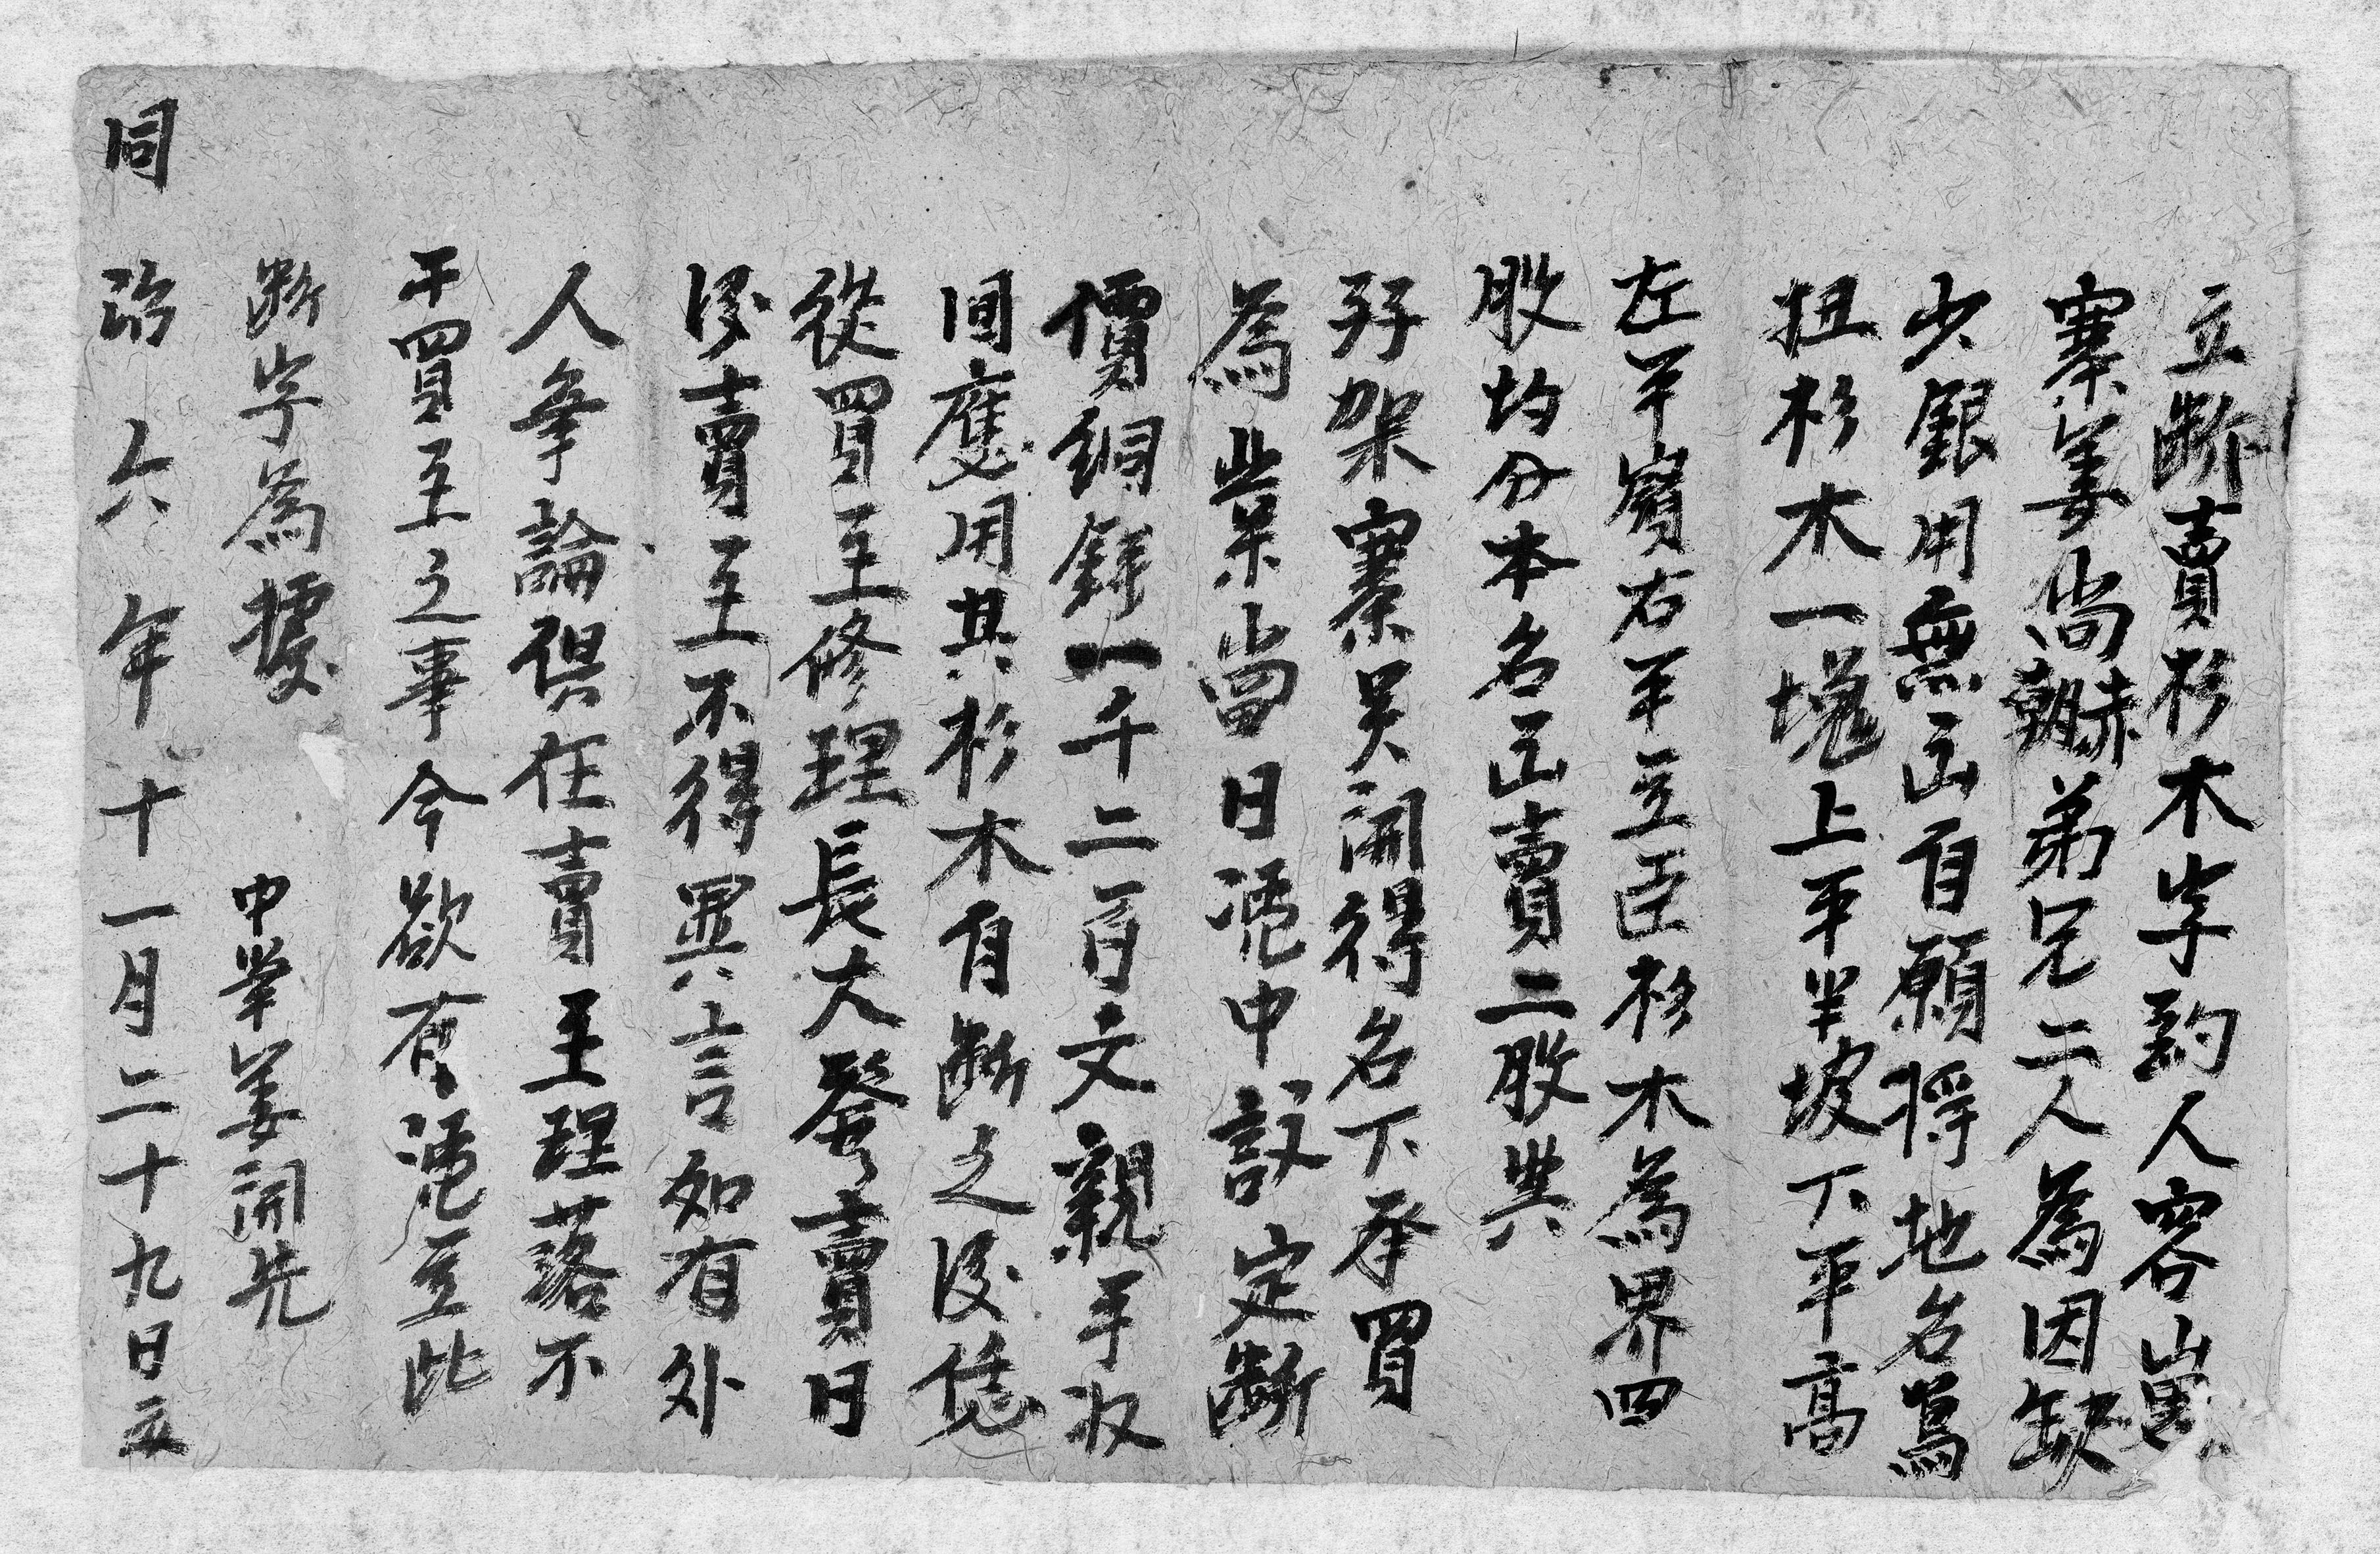 立斷賣杉木字約人容嵩
寨姜尚朝赤弟兄二人為因缺
少銀用無出自願將地名鳥
扭杉木一塊上平半坡下平高
左平賓右平豆臣杉木為界四
股均分本名出賣二股與
孖架寨吴開得名下承買
為業當日憑中議定斷
價銅錢一千二百文親手收
回應用其杉木自斷之後憑
從買主修理長大發賣日
後賣主不得異言如有外
人爭論俱在賣主理落不
干買主之事今欲有憑立此
斷字為據　中筆姜開先
同治六年十一月二十九日立